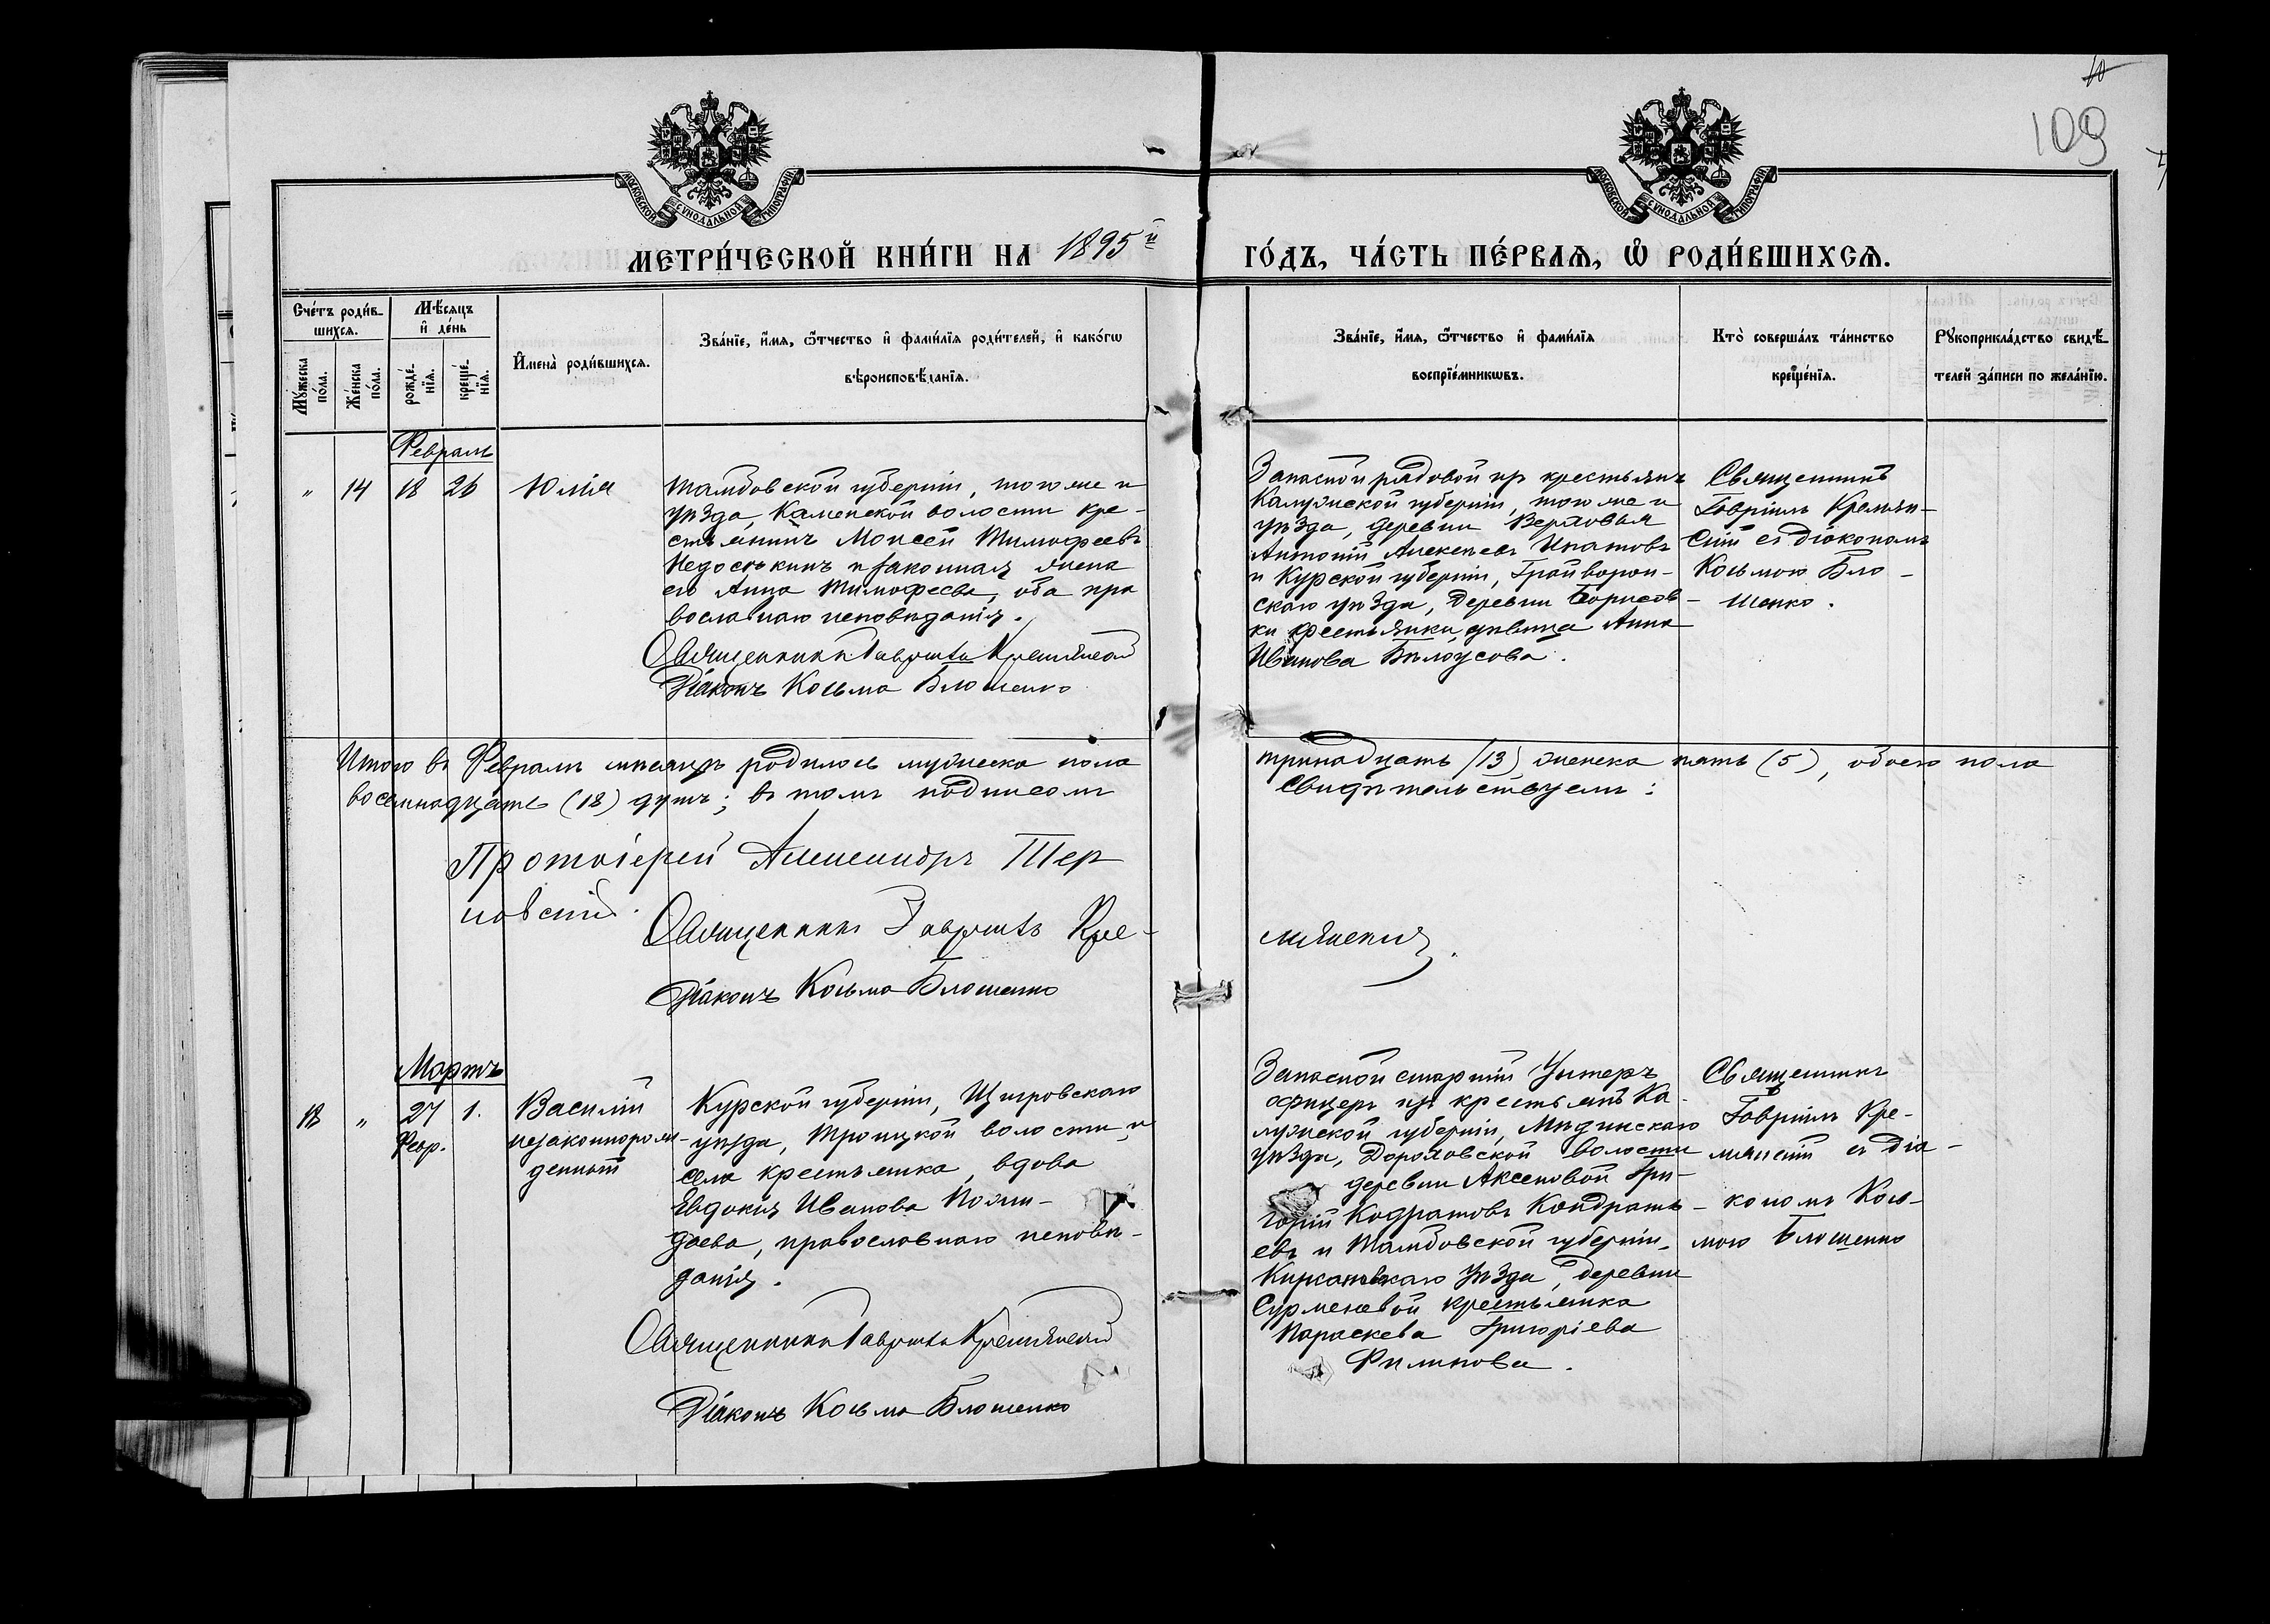 10
109
МОСКОВСКОЙ СѴНОДАЛЬНОЙ ТИПОГРАФІИ
МОСКОВСКОЙ СѴНОДАЛЬНОЙ ТИПОГРАФІИ
МЕТРИ́ЧЕСКОЙ КНИ́ГИ НА 1895й
ГО́ДЪ, ЧА́СТЬ ПЕ́РВАѦ, Ѡ РОДИ́ВШИХСѦ.
Сче́тъ роди́в-
шихся.
Мꙋ́жеска по́ла.
Же́нска по́ла.
Мѣ́сяцъ
и де́нь
рожде́-нія.
креще́-нія.
Имена̀ роди́вшихся.
Зва́ніе, и́мя, ѻ҆́тчество и фами́лія роди́телей, и како́гѡ
вѣроисповѣ́данія.
Зва́ніе, и́мя, ѻ҆́тчество и фами́лія
воспріе́мникѡвъ.
Кто̀ соверша́лъ та́инство
креще́нія.
Рꙋкоприкла́дство свидѣ́-
телей за́писи по жела́нію.
Февраль
" 14 18 26 Юлія
Тамбовской губерніи, того же и
уѣзда, Каменской волости кре-
стьянинъ Моисей Тимофеевъ
Недоськинъ и законная жена
его Анна Тимофеева, оба пра
вославнаго исповѣданія.
Священникъ Гавріилъ Кремянскій
Діаконъ Косьма Блошенко
Запасной рядовой изъ крестьянъ
Калужской губерніи, того же и
уѣзда, деревни Верховья
Антоній Алексѣевъ Ипатовъ
и Курской губерніи, Грайворон-
скаго уѣзда, деревни Борисов-
ки крестьянки, дѣвица Анна
Иванова Бѣлоусова.
Священникъ
Гавріилъ Кремян-
скій съ діакономъ
Косьмою Бло-
шенко.
Итого въ Февралѣ мѣсяцѣ родилось мужеска пола
тринадцать (13), женска пять (5), обоего пола
восемнадцать (18) душъ; въ томъ подписомъ
свидѣтельствуемъ:
Протоіерей Александръ Тер
новскій.
Священникъ Гавріилъ Кре-
мянскій.
Діаконъ Косьма Блошенко
Мартъ
18 " 27 1.
Февр.
Василій
незаконнорож-
денный
Курской губерніи, Щигровскаго
уѣзда, Троицкой волости и
села крестьянка, вдова
Евдокія Иванова
даева, православнаго исповѣ-
данія.
Священникъ Гавріилъ Кремянскій
Діаконъ Косьма Блошенко
Запасной старшій Унтеръ
офицеръ изъ крестьянъ Ка-
лужской губерніи, Мядинскаго
уѣзда, Дороховской волости
деревни Аксеновой Гри-
горій Кодратовъ Кондрать-
евъ и Тамбовской губерніи,
Кирсановскаго уѣзда, деревни
Сурменевой крестьянка
Параскева Григоріева
Филипова.
Священникъ
Гавріилъ Кре-
мянскій съ діа-
кономъ Кось-
мою Блошенко